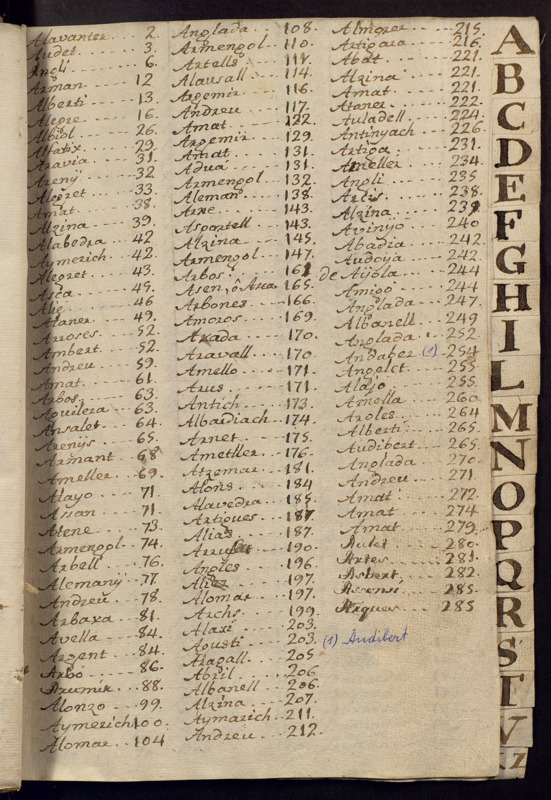 Alavanter 2.
Audet 3.
Angli 6.
Arman 12
Alberti 13.
Alegre 16.
Albiol 26.
Alfatix 29
Aravia 31.
Areny 32
Alegret 33
Amat 38.
Alzina 39.
Alabedra 42
Aymerich 42.
Alegret 43.
Asca 45.
Alie 46
Ataner 49.
Arroses 52.
Ambert 52.
Andreu 59.
Amat 61.
Arbos 63.
Aguilera 63.
Ansalet 64.
Arenijs 65.
Armant 68
Ameller 69.
Alayo 71
Assan 71.
Atene 73.
Armengol 74.
Arbell 76.
Alemany 77.
Andreu 78.
Arbaxa 81.
Avella 84.
Argent 84.
Arbo 86.
88.
Alonzo 99.
Aymerich 100.
Alomar 104
Anglada 108.
Armengol 110.
Artells 111.
Alausall 114.
Argemir 116.
Andreu 117.
Amat 122.
Argemir 129.
Amat 131.
Adua 131.
Armengol 132
Aleman 138.
Arxe 143.
Aspertell 143.
Alzina 145.
Armengol 147.
Arbos 161
Asen, ó Asea 165.
Arbones 166.
Amoros 169.
Arada 170.
Aravall 170
Amello 171.
Arus 171
Antich 173.
Albardiach 174.
Arnet 175.
Ametller 176.
Atzemar 181.
Alons 184
Alavedra 185.
Artigues 187
Alias 187.
190.
Angles 196.
Aliez 197.
Alomar 197.
Archs 199.
Alaxi 203.
Agusti 203.
Aragall 205
Abril 206
Albanell 206.
Alzina 207.
Aymarich 211.
Andreu 212.
Almorer 215
Artigara 216.
Abat 221.
Alzina 221.
Amat 221.
Ataner 222.
Auladell 224.
Antinyach 226.
Artiga 231.
Ameller 234.
Angli 235
Artis 238.
Alzina 239
Avinyo 240
Abadia 242.
Audoya 242.
de Aijola 244
Amigó 244
Anglada 247.
Albanell 249
Anglada 252
Andaber (1) 254
Angelet 255
Alajo 255.
Arnolla 260
Aroles 264
Alberti 265.
Audibert 265.
Anglada 270.
Andreu 271
Amat 272.
Amat 274
Amat 279.
Aulet 280.
Artes 281.
Asbert 282
Assensi 285.
Arques 285
(1) Audibert
A
B
C
D
E
F
G
H
I
L
M
N
O
P
Q
R
S
T
V
Z